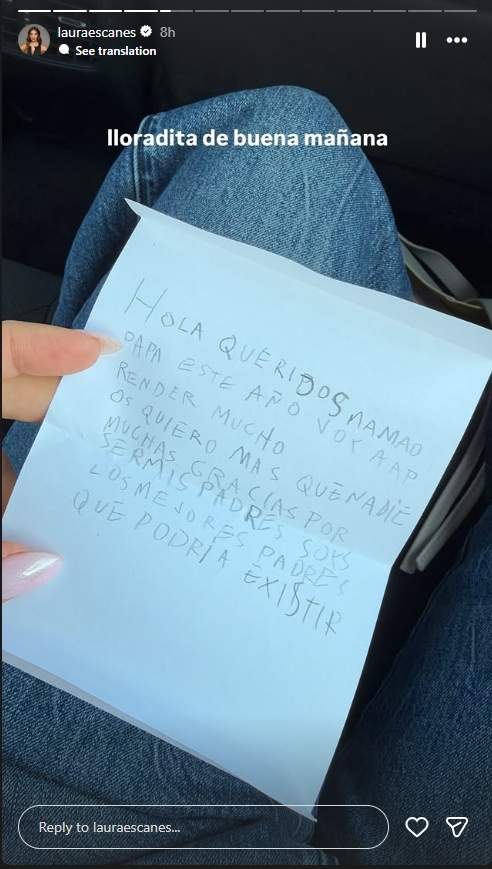 lauraescanes 8h
See translation
lloradita de buena mañana
HOLA QUERIDOS MAMAO
PAPA ESTE AÑO VOY A AP
RENDER MUCHO
OS QUIERO MAS QUE NADIE
MUCHAS GRACIAS POR
SER MIS PADRES SOYS
LOS MEJORES PADRES
QUE PODRIA EXISTIR
Reply to lauraescanes...